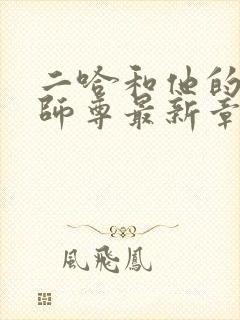 二哈和他的
師尊最新章
風飛鳳